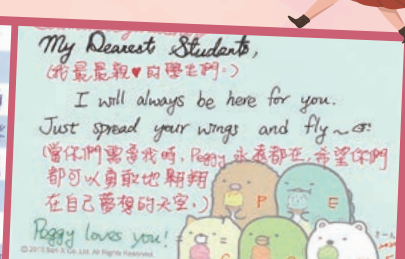 My Dearest Students,
(我最最親♥的學生們。)
I will always be here for you.
Just spread your wings and fly~
(當你們需要我時,Peggy 永遠都在,希望你們
都可以勇敢地翱翔
在自己夢想的天空。)
P E
Peggy loves you!
Co.,Ltd. All Rights Reserved.